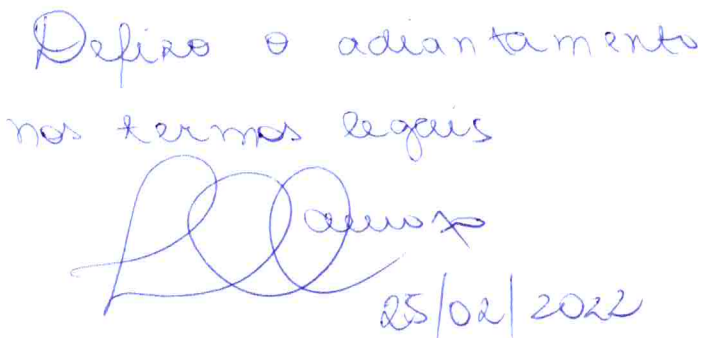 Defiro o adiantamento
nos termos legais
25/02/2022